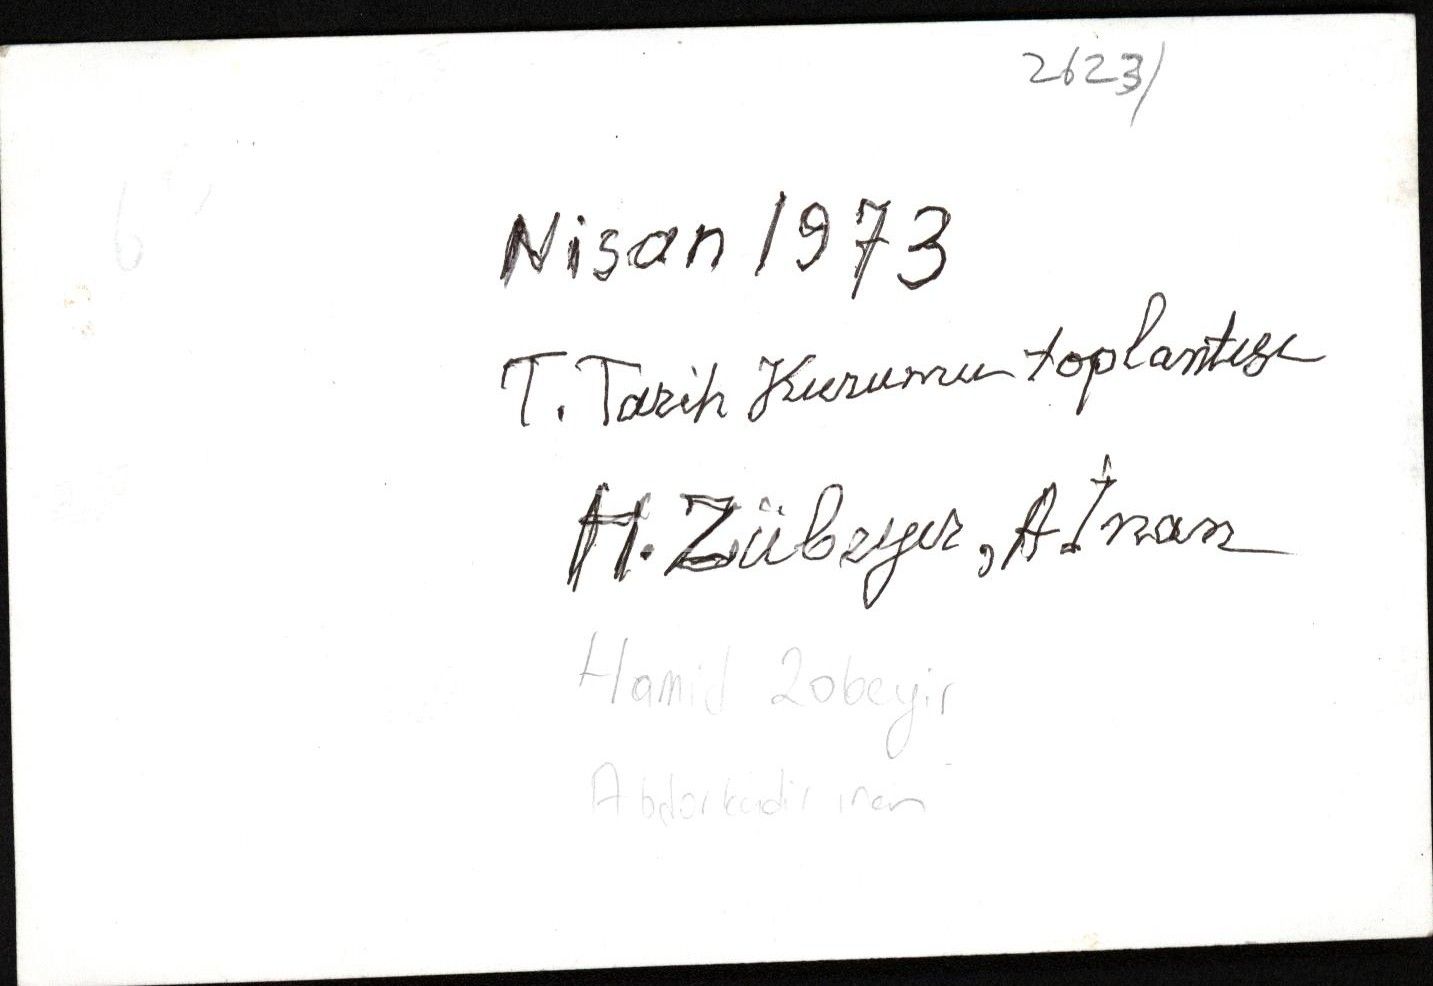 2623/
Nisan 1973
T. Tarih Kurumu toplantısı
H. Zübeyir, A. İnan
Hamid Zobeyir
Abdorkadir inan